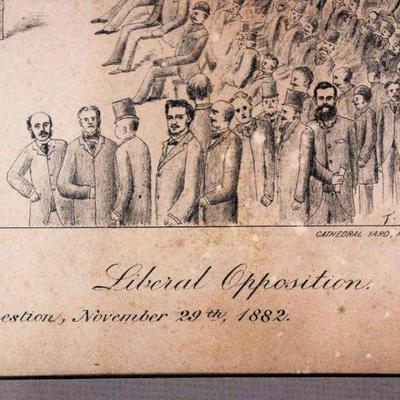 CATHEDRAL YARD,
Liberal Opposition.
estion, November 29th, 1882.